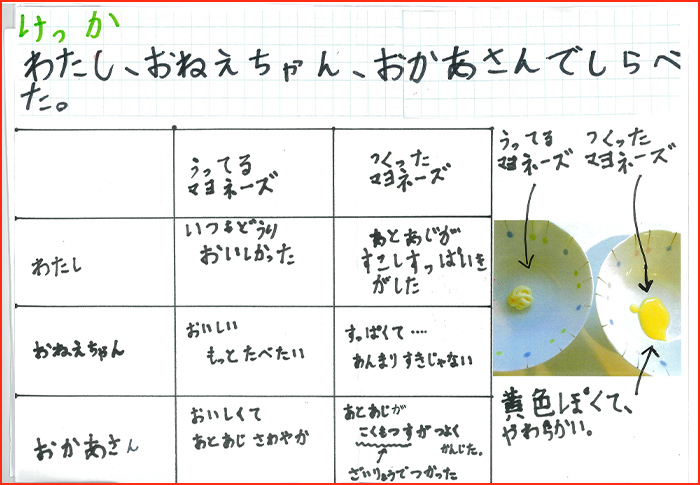 けっか
わたし、おねえちゃん、おかあさんでしらべ
た。
うってる
マヨネーズ
つくった
マヨネーズ
わたし
いつもどうり
おいしかった
あとあじが
すこしすっぱいき
がした
おねえちゃん
おいしい
もっとたべたい
すっぱくて‥‥
あんまりすきじゃない
おかあさん
おいしくて
あとあじ さわやか
あとあじが
こくもつすがつよく
かんじた。
ざいりょうでつかった
うってる
マヨネーズ
つくった
マヨネーズ
黄色ぽくて、
やわらかい。